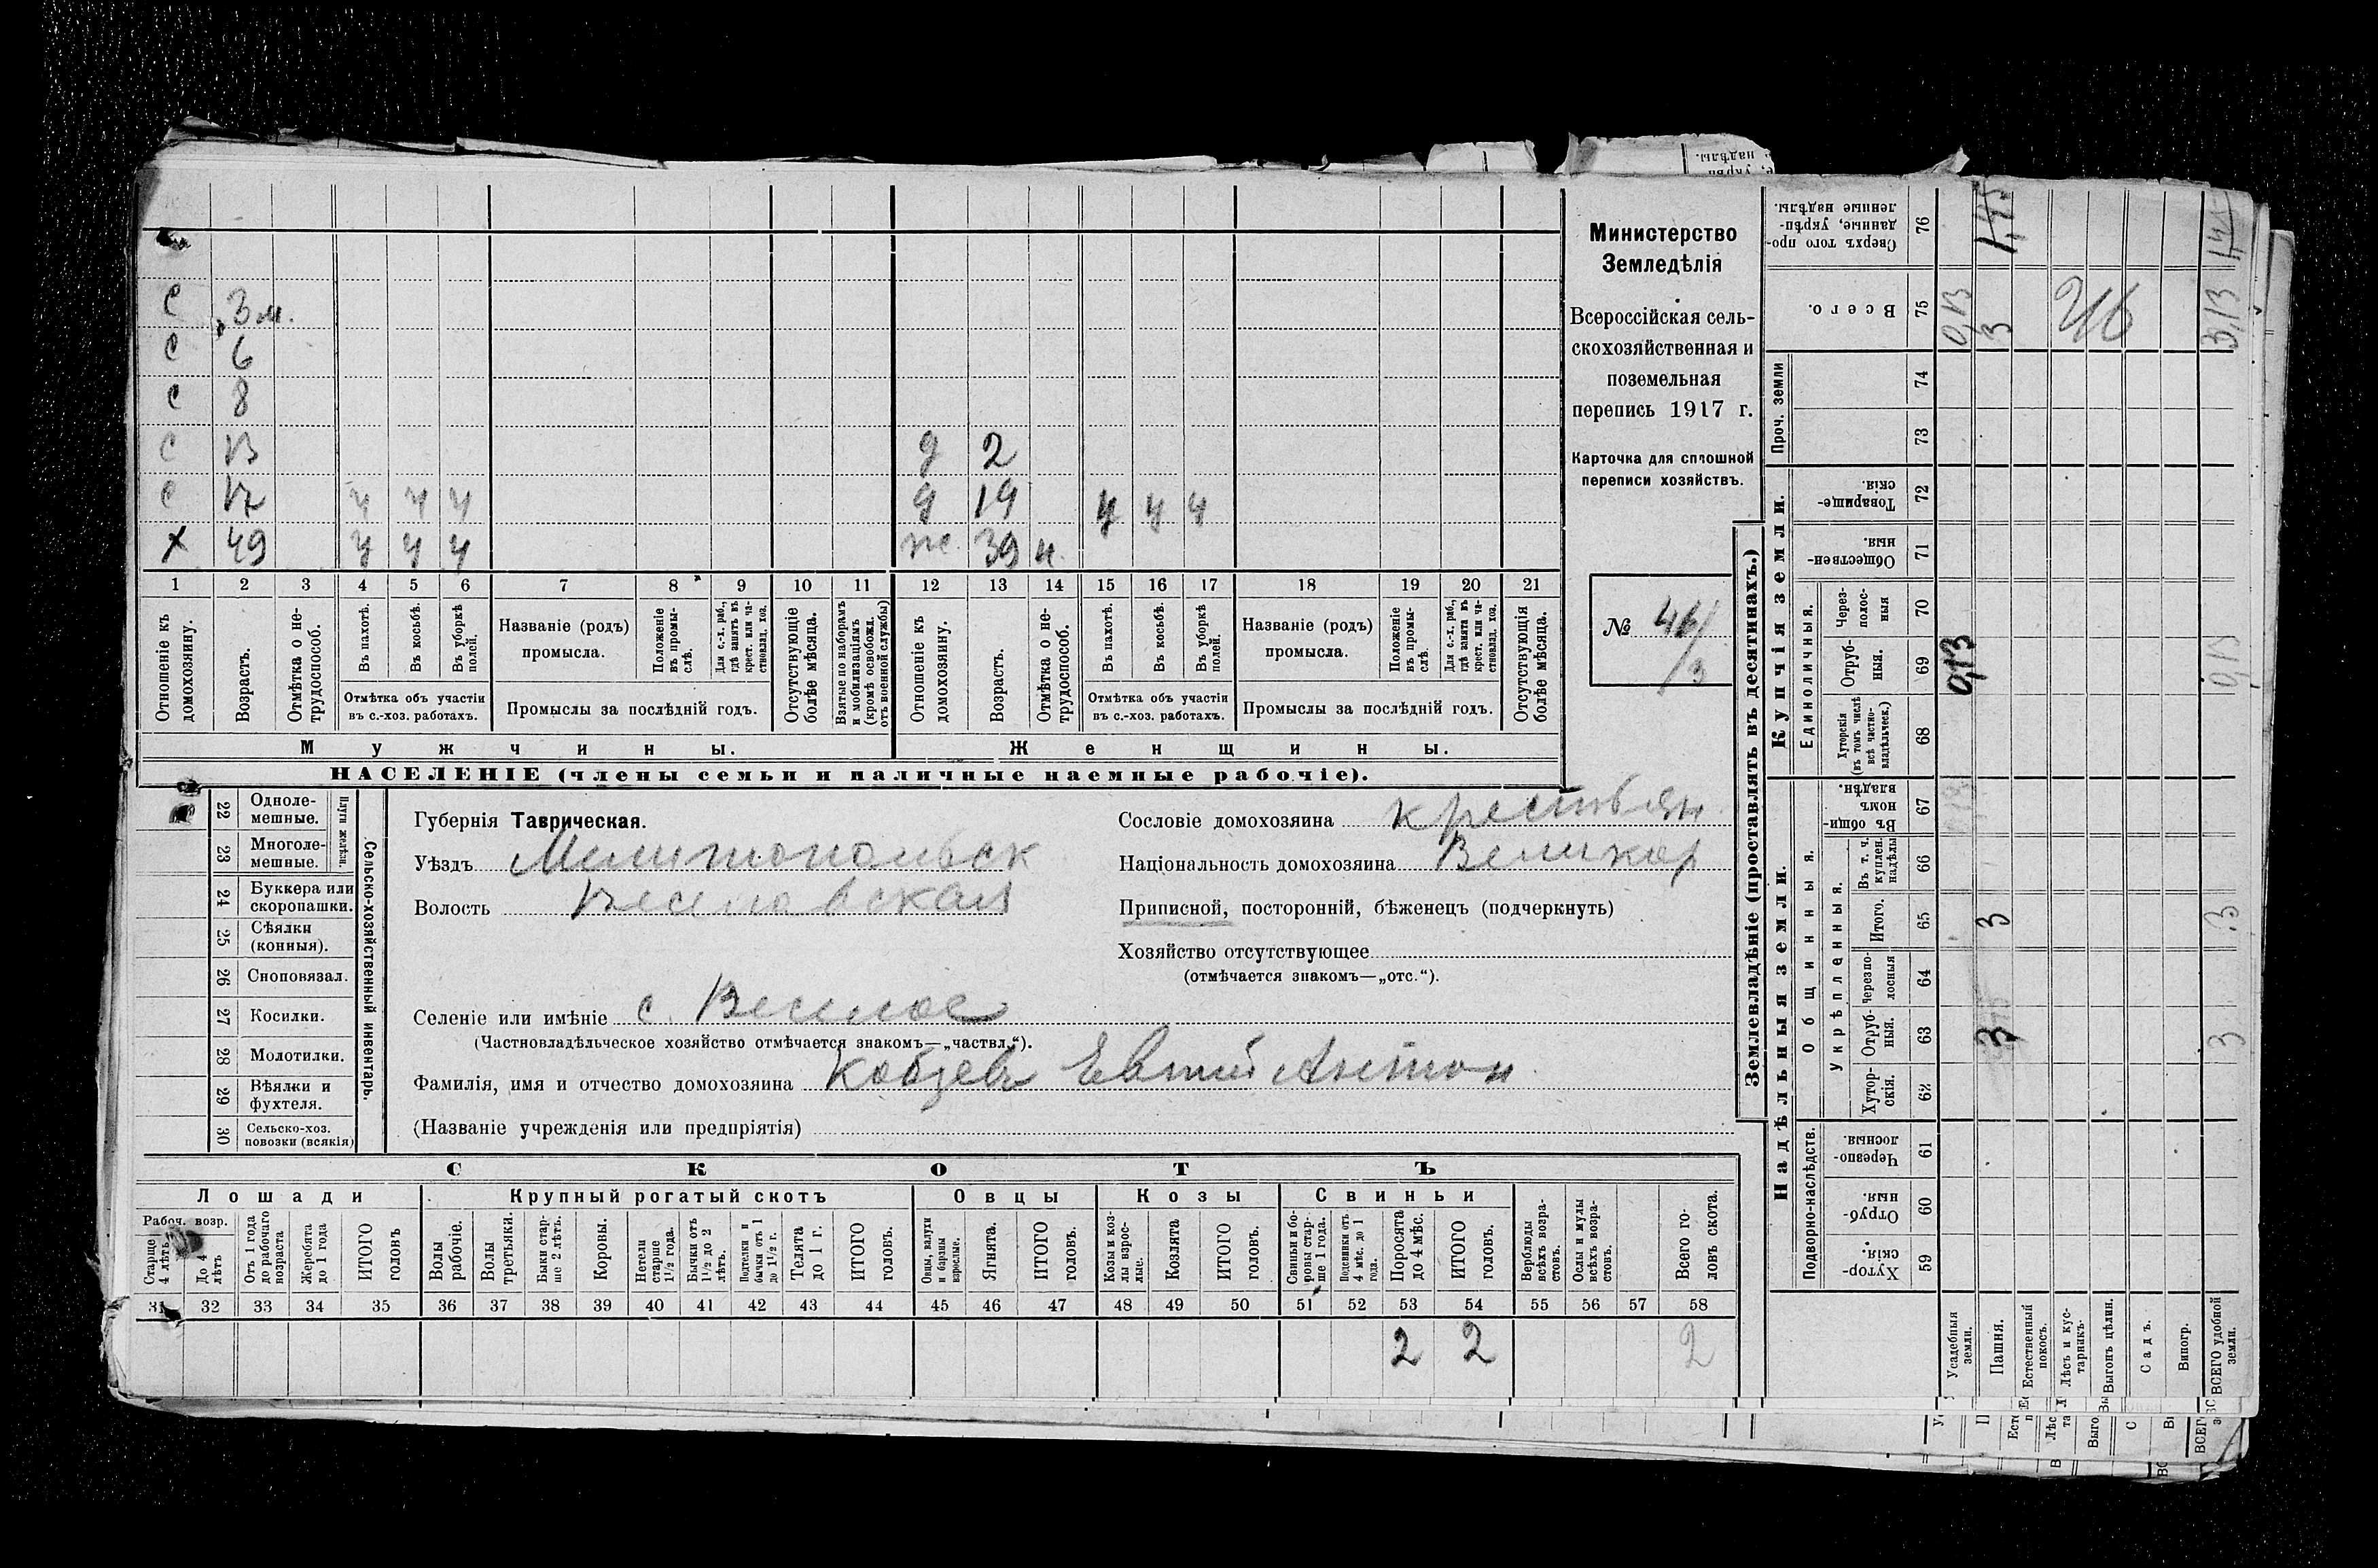 С 3 м.
С 6
С 8
С 13 д 2
С 17 ч ч ч д 19 ч ч ч
Х 49 ч ч ч ж. 39 н.
1 2 3 4 5 6 7 8 9 10 11 12 13 14 15 16 17 18 19 20 21
Отношеніе къ домохозяину.
Возрастъ.
Отмѣтка о нетрудоспособ.
Въ пахотѣ.
Въ косьбѣ.
Въ уборкѣ полей.
Отмѣтка объ участіи въ с.-хоз. работахъ.
Названіе (родъ) промысла.
Положеніе въ промыслѣ.
Для с.-х. раб., гдѣ занятъ въ крест. или частновлад. хоз.
Промыслы за послѣдній годъ.
Отсутствующіе болѣе мѣсяца.
Взятые по наборамъ и мобилизаціямъ (кромѣ освобожд. отъ военной службы)
Отношеніе къ домохозяину.
Возрастъ.
Отмѣтка о нетрудоспособ.
Въ пахотѣ.
Въ косьбѣ.
Въ уборкѣ полей.
Отмѣтка объ участіи въ с.-хоз. работахъ.
Названіе (родъ) промысла.
Положеніе въ промыслѣ.
Для с.-х. раб., гдѣ занята въ крест. или частновлад. хоз.
Промыслы за послѣдній годъ.
Отсутствующія болѣе мѣсяца.
Мужчины. Женщины.
НАСЕЛЕНІЕ (члены семьи и наличные наемные рабочіе).
Министерство
Земледѣлія
Всероссійская сель-
скохозяйственная и
поземельная
перепись 1917 г.
Карточка для сплошной
переписи хозяйствъ.
№
22 Одноле-
мешные.
23 Многоле-
мешные.
Плуги желѣзн.
24 Буккера или
скоропашки.
25 Сѣялки
(конныя).
26 Сноповязал.
27 Косилки.
28 Молотилки.
29 Вѣялки и
фухтеля.
30 Сельско-хоз.
повозки (всякія)
Сельско-хозяйственный инвентарь.
Губернія Таврическая.
Уѣздъ Мелитопольск
Волость Веселовская
Селеніе или имѣніе с. Веселое
(Частновладѣльческое хозяйство отмѣчается знакомъ—„частвл.“).
Фамилія, имя и отчество домохозяина Кобзевъ Евтий Антон
(Названіе учрежденія или предпріятія)
Сословіе домохозяина крестьян
Національность домохозяина Великор
Приписной, посторонній, бѣженецъ (подчеркнуть)
Хозяйство отсутствующее
(отмѣчается знакомъ—„отс.“).
СКОТЪ
Лошади Крупный рогатый скотъ Овцы Козы Свиньи
Рабоч. возр.
Старше 4 лѣтъ
До 4 лѣтъ
Отъ 1 года до рабочаго возраста
Жеребята до 1 года
ИТОГО головъ
Волы рабочіе.
Волы третьяки.
Быки старше 2 лѣтъ.
Коровы.
Нетели старше 1½ года.
Бычки отъ 1½ до 2 лѣтъ.
Подтелки и бычки отъ 1 до 1½ г.
Телята до 1 г.
ИТОГО головъ.
Овцы, валухи и бараны взрослые.
Ягнята.
ИТОГО головъ.
Козы и козлы взрослые.
Козлята
ИТОГО головъ.
Свиньи и боровы старше 1 года.
Подсвинки отъ 4 мѣс. до 1 года.
Поросята до 4 мѣс.
ИТОГО головъ.
Верблюды всѣхъ возрастовъ.
Ослы и мулы всѣхъ возрастовъ.
Всего головъ скота.
31 32 33 34 35 36 37 38 39 40 41 42 43 44 45 46 47 48 49 50 51 52 53 54 55 56 57 58
2 2 2
Землевладѣніе (проставлять въ десятинахъ.)
Надѣльныя земли. Купчія земли. Проч. земли
Подворно-наслѣдств. Общинныя. Единоличныя.
Укрѣпленныя.
Сверхъ того проданные, укрѣпленные надѣлы. 76
Всего. 75
74
73
Товарищескія. 72
Общественныя. 71
Черезполосныя 70
Отрубныя. 69
Хуторскія (въ томъ числѣ всѣ частновладѣльческ.) 68
Въ общинномъ владѣн. 67
Въ т. ч. куплен. надѣлы 66
Итого. 65
Черезполосныя 64
Отрубныя. 63
Хуторскія. 62
Черезполосныя. 61
Отрубныя. 60
Хуторскія. 59
Усадебныя земли. 0,13 0,13
Пашня. 3 3 3 1,45
Естественный покосъ.
Лѣсъ и кустарникъ.
Выгонъ цѣлин.
Садъ.
Виногр.
ВСЕГО удобной земли. 3 3 0,13 3,13 1,45